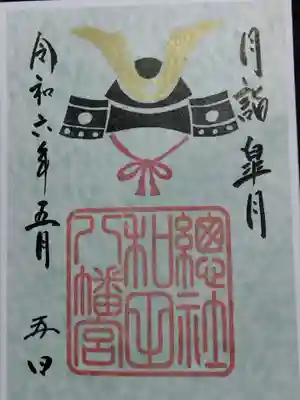 月詣 皐月
令和六年五月 五日
總社
和田
八幡宮